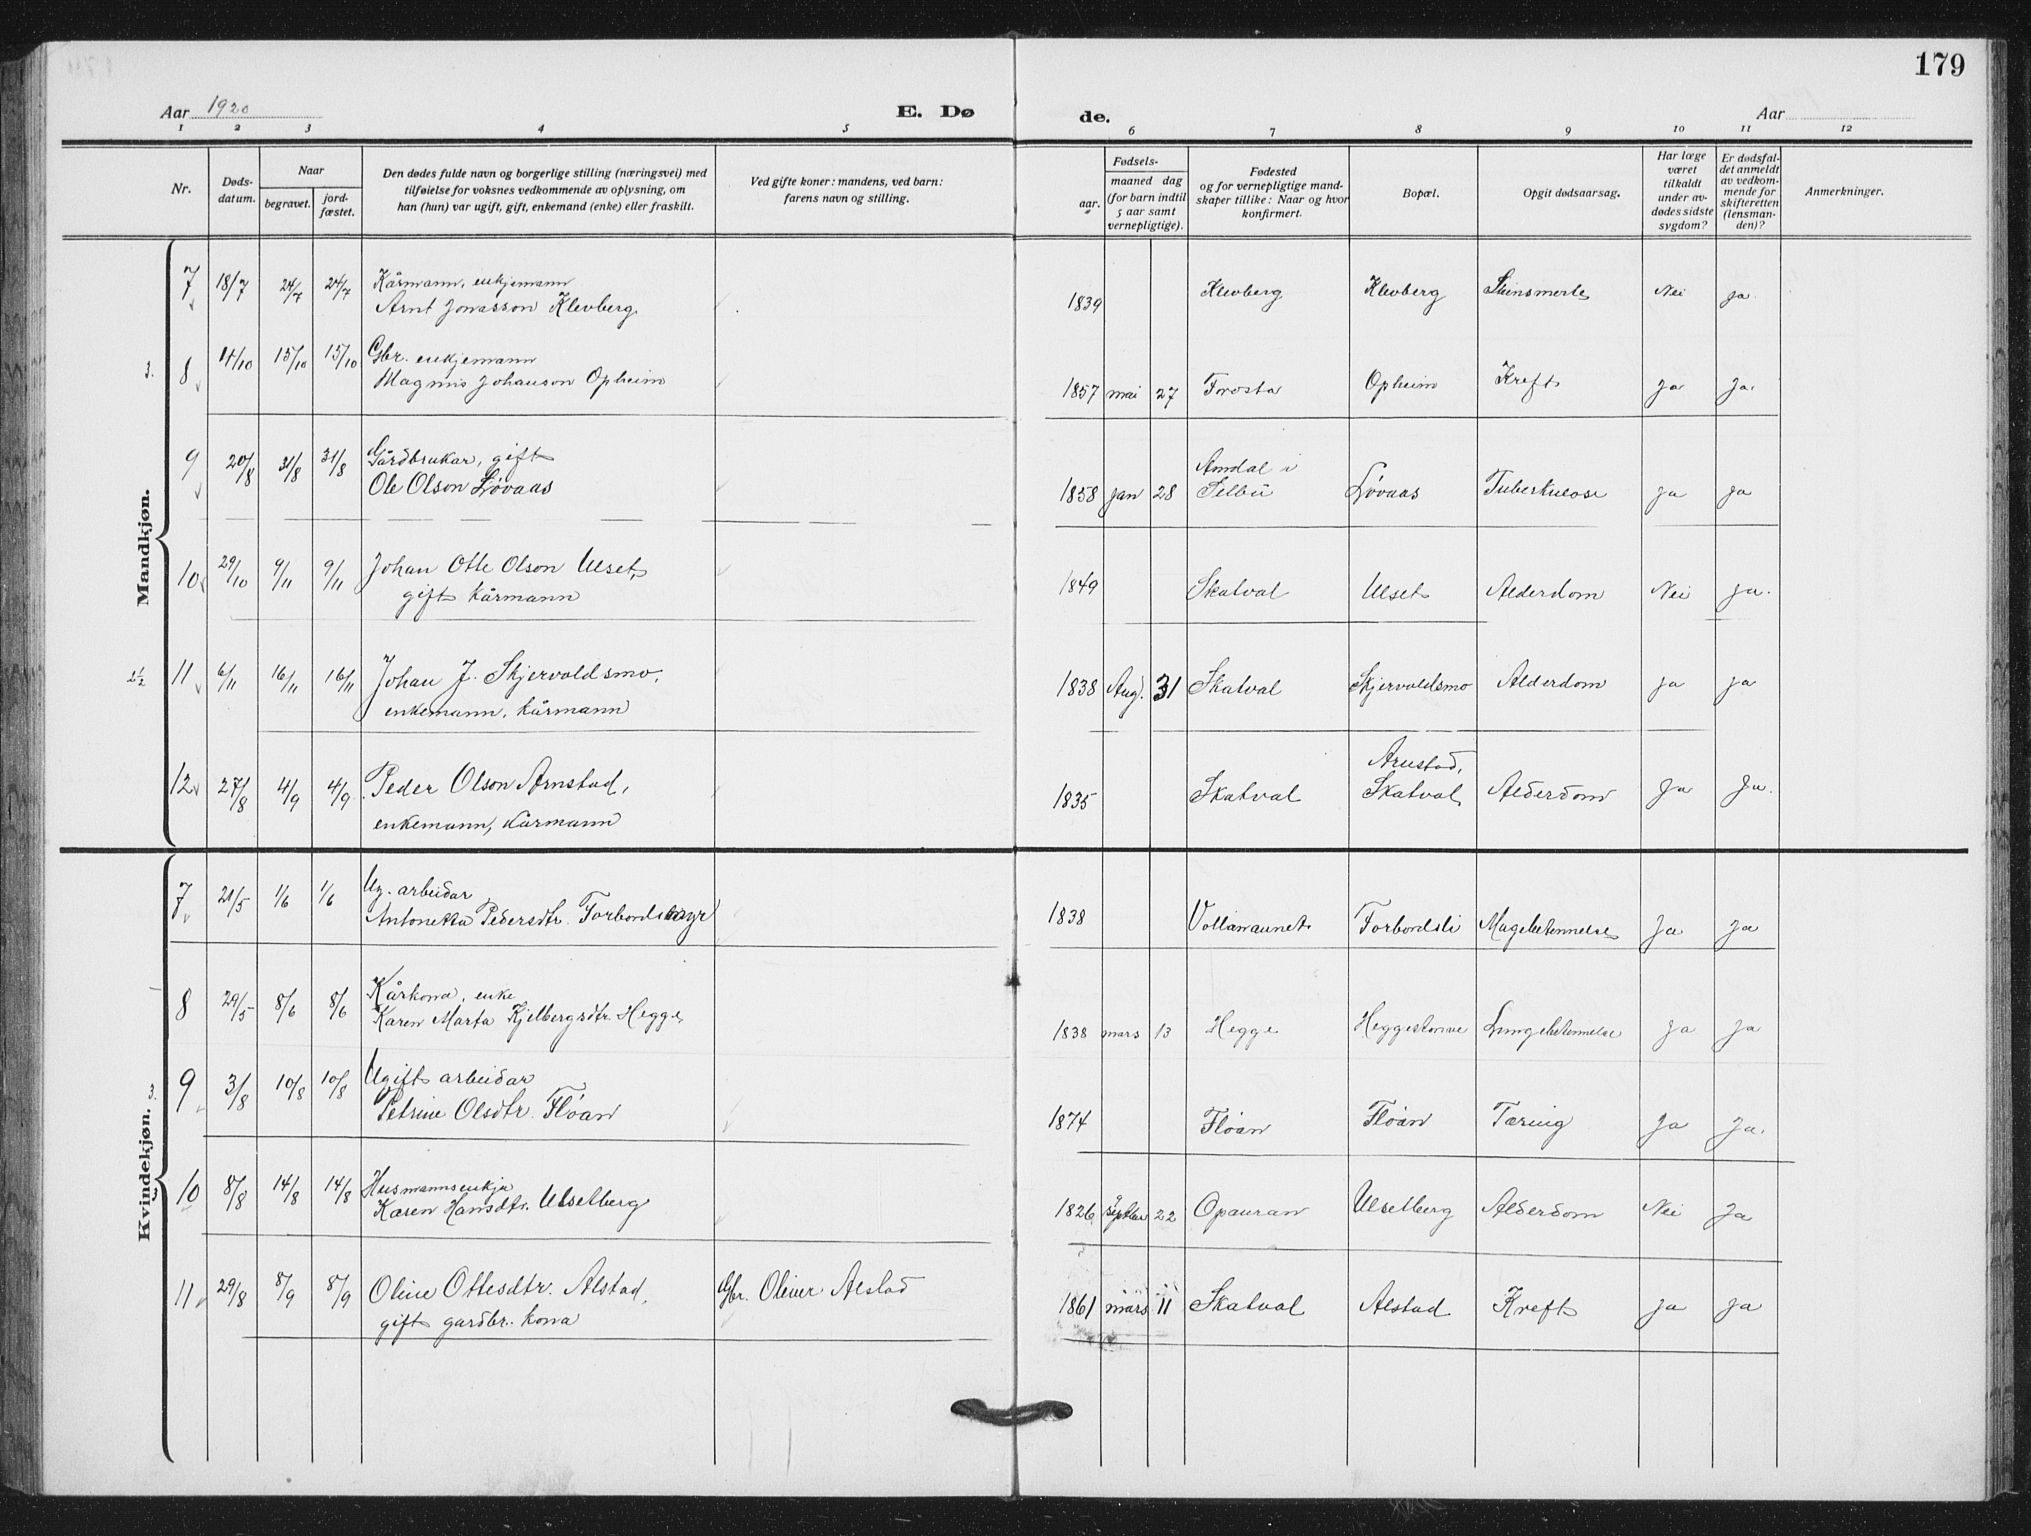 179
Aar 1920
E. Dø de.
Aar
1 2 3 4 5 6 7 8 9 10 11 12
Nr.
Døds-
datum.
Naar
begravet.
jord-
fæstet.
Den dødes fulde navn og borgerlige stilling (næringsvei) med
tilføielse for voksnes vedkommende av oplysning, om
han (hun) var ugift, gift, enkemand (enke) eller fraskilt.
Ved gifte koner: mandens, ved barn:
farens navn og stilling.
Fødsels-
aar.
maaned dag
(for barn indtil
5 aar samt
vernepligtige).
Fødested
og for vernepligtige mand-
skaper tillike: Naar og hvor
konfirmert.
Bopæl.
Opgit dødsaarsag.
Har læge
været
tilkaldt
under av-
dødes sidste
sygdom?
Er dødsfal-
det anmeldt
av vedkom-
mende for
skifteretten
(lensman-
den)?
Anmerkninger.
Mandkjøn.
7 18/7 24/7 24/7 Kårmann, enkjemann
Arnt Jonasson Klevberg 1839 Klevberg Klevberg Nei Ja
3.
8 11/10 15/10 15/10 Gbr. enkjemann
Magnus Johanson Opheim 1857 mai 27 Frosta Opheim Kreft Ja Ja.
9 20/8 31/8 31/8 Gårdbrukar, gift
Ole Olson Løvaas 1858 jan 28 Amdal i
Selbu Løvaas Tuberkulose Ja Ja
10 29/10 9/11 9/11 Johan Otte Olson Ulset,
gift kårmann 1849 Skatval Ulset Alderdom Nei Ja.
2½
11 6/11 16/11 16/11 Johan J. Skjervoldsmo,
enkemann, kårmann 1838 Aug. 31 Skatval Skjervoldsmo Alderdom Ja Ja
12 27/8 4/9 4/9 Peder Olson Arnstad,
enkemann, kårmann 1835 Skatval Arnstad,
Skatval Alderdom Ja Ja.
Kvindekjøn.
7 21/5 1/6 1/6 Ug. arbeidar
Antonetta Pedersdtr. Forbordsmyr 1838 Vollamaunet Forbordsli Magebetennelse Ja Ja
8 29/5 8/6 8/6 Kårkona, enke
Karen Marta Kjelbergsdtr. Hegge 1838 mars 13 Hegge Lungebetennelse Ja Ja
3.
9 3/8 10/8 10/8 Ugift arbeidar
Petrine Olsdtr. Fløan 1874 Fløan Fløan Tæring Ja Ja.
3
10 8/8 14/8 14/8 Husmannsenkja
Karen Hansdtr. Ulsetberg 1826 septbr 22 Opauran Ulsetberg Alderdom Nei Ja
11 29/8 8/9 8/9 Oline Ottesdtr. Alstad, Gbr. Oliver Alstad
gift gardbr. kona 1861 mars 11 Skatval Alstad Kreft Ja Ja